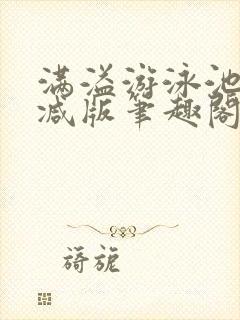 满溢游泳池
减版笔趣阁
旖旎